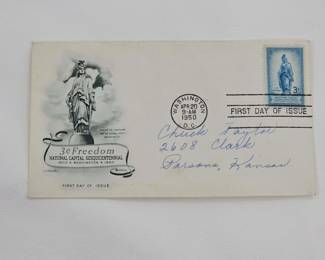 WASHINGTON
APR 20
9-AM
1950
D.C.
3¢
FIRST DAY OF ISSUE
3¢ Freedom
NATIONAL CAPITAL SESQUICENTENNIAL
1800 WASHINGTON 1950
FIRST DAY OF ISSUE
Chuck Taylor
2608 Clark
Parsons, Kansas